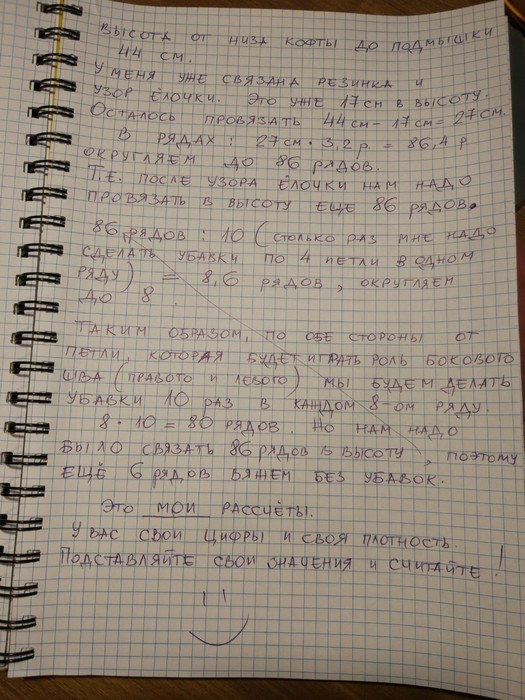 ВЫСОТА ОТ НИЗА КОФТЫ ДО ПОДМЫШКИ
44 СМ.
У МЕНЯ УЖЕ СВЯЗАНА РЕЗИНКА И
УЗОР ЁЛОЧКИ. ЭТО УЖЕ 17 СМ В ВЫСОТУ.
ОСТАЛОСЬ ПРОВЯЗАТЬ 44 СМ - 17 СМ = 27 СМ.
В РЯДАХ: 27 СМ • 3,2 Р. = 86,4 Р
ОКРУГЛЯЕМ ДО 86 РЯДОВ.
Т.Е. ПОСЛЕ УЗОРА ЁЛОЧКИ НАМ НАДО
ПРОВЯЗАТЬ В ВЫСОТУ ЕЩЕ 86 РЯДОВ.
86 РЯДОВ : 10 (СТОЛЬКО РАЗ МНЕ НАДО
СДЕЛАТЬ УБАВКИ ПО 4 ПЕТЛИ В ОДНОМ
РЯДУ) = 8,6 РЯДОВ, ОКРУГЛЯЕМ
ДО 8.
ТАКИМ ОБРАЗОМ, ПО ОБЕ СТОРОНЫ ОТ
ПЕТЛИ, КОТОРАЯ БУДЕТ ИГРАТЬ РОЛЬ БОКОВОГО
ШВА (ПРАВОГО И ЛЕВОГО) МЫ БУДЕМ ДЕЛАТЬ
УБАВКИ 10 РАЗ В КАЖДОМ 8-ОМ РЯДУ.
8 • 10 = 80 РЯДОВ. НО НАМ НАДО
БЫЛО СВЯЗАТЬ 86 РЯДОВ В ВЫСОТУ, ПОЭТОМУ
ЕЩЁ 6 РЯДОВ ВЯЖЕМ БЕЗ УБАВОК.
ЭТО МОИ РАССЧЁТЫ.
У ВАС СВОИ ЦИФРЫ И СВОЯ ПЛОТНОСТЬ.
ПОДСТАВЛЯЙТЕ СВОИ ЗНАЧЕНИЯ И СЧИТАЙТЕ!